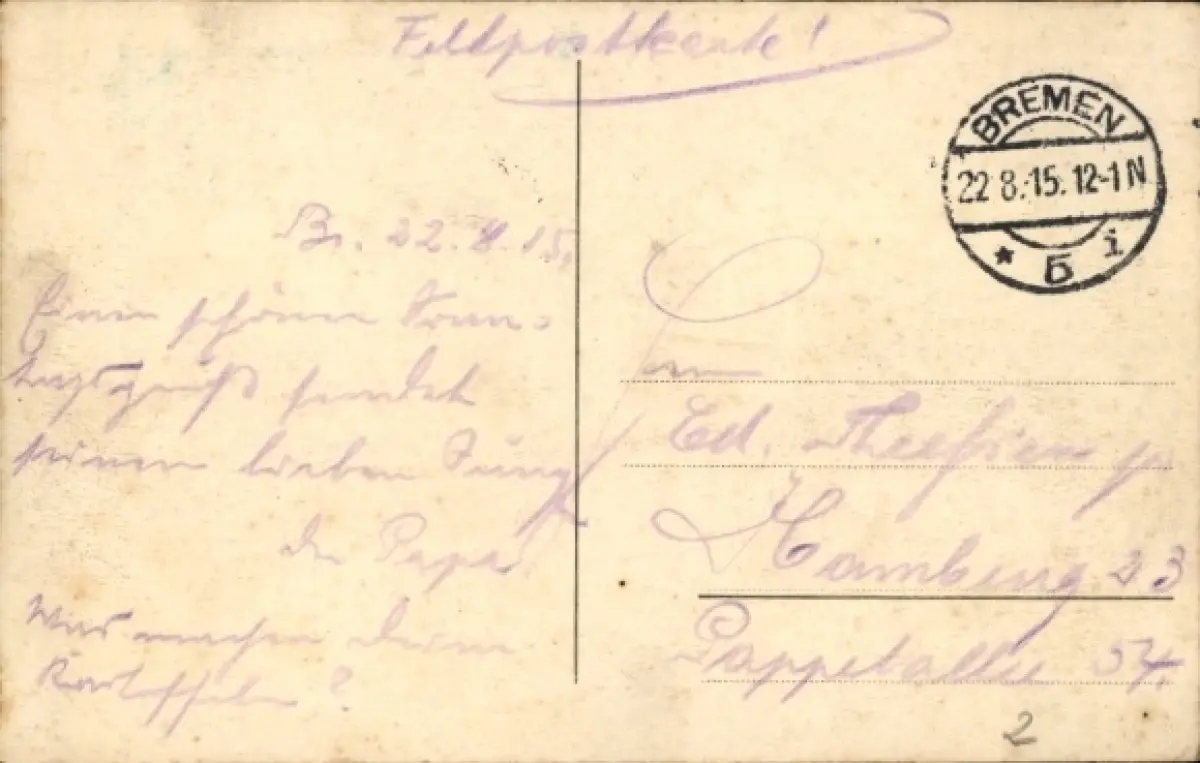 Feldpostkarte!
BREMEN
22 8.15. 12-1 N
* 5 i
Br. 22.8.15.
Einen schönen Sonn-
tagsgruß sendet
seinem lieben Jung
der Papa
Was machen deine
Kartoffeln?
Ed.
Hamburg 23
Pappelallee 54.
2